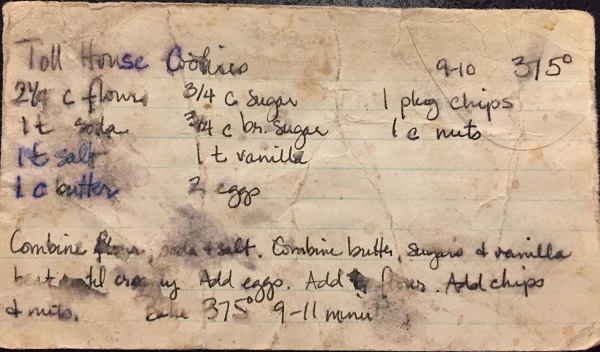 Toll House Cookies 9-10 375°
2 1/4 c flour 3/4 c sugar 1 pkg chips
1 t soda 3/4 c br. sugar 1 c nuts
1 t salt 1 t vanilla
1 c butter 2 eggs
Combine flour, soda + salt. Combine butter, sugars + vanilla
beat until creamy Add eggs. Add flour. Add chips
+ nuts. Bake 375° 9-11 minu